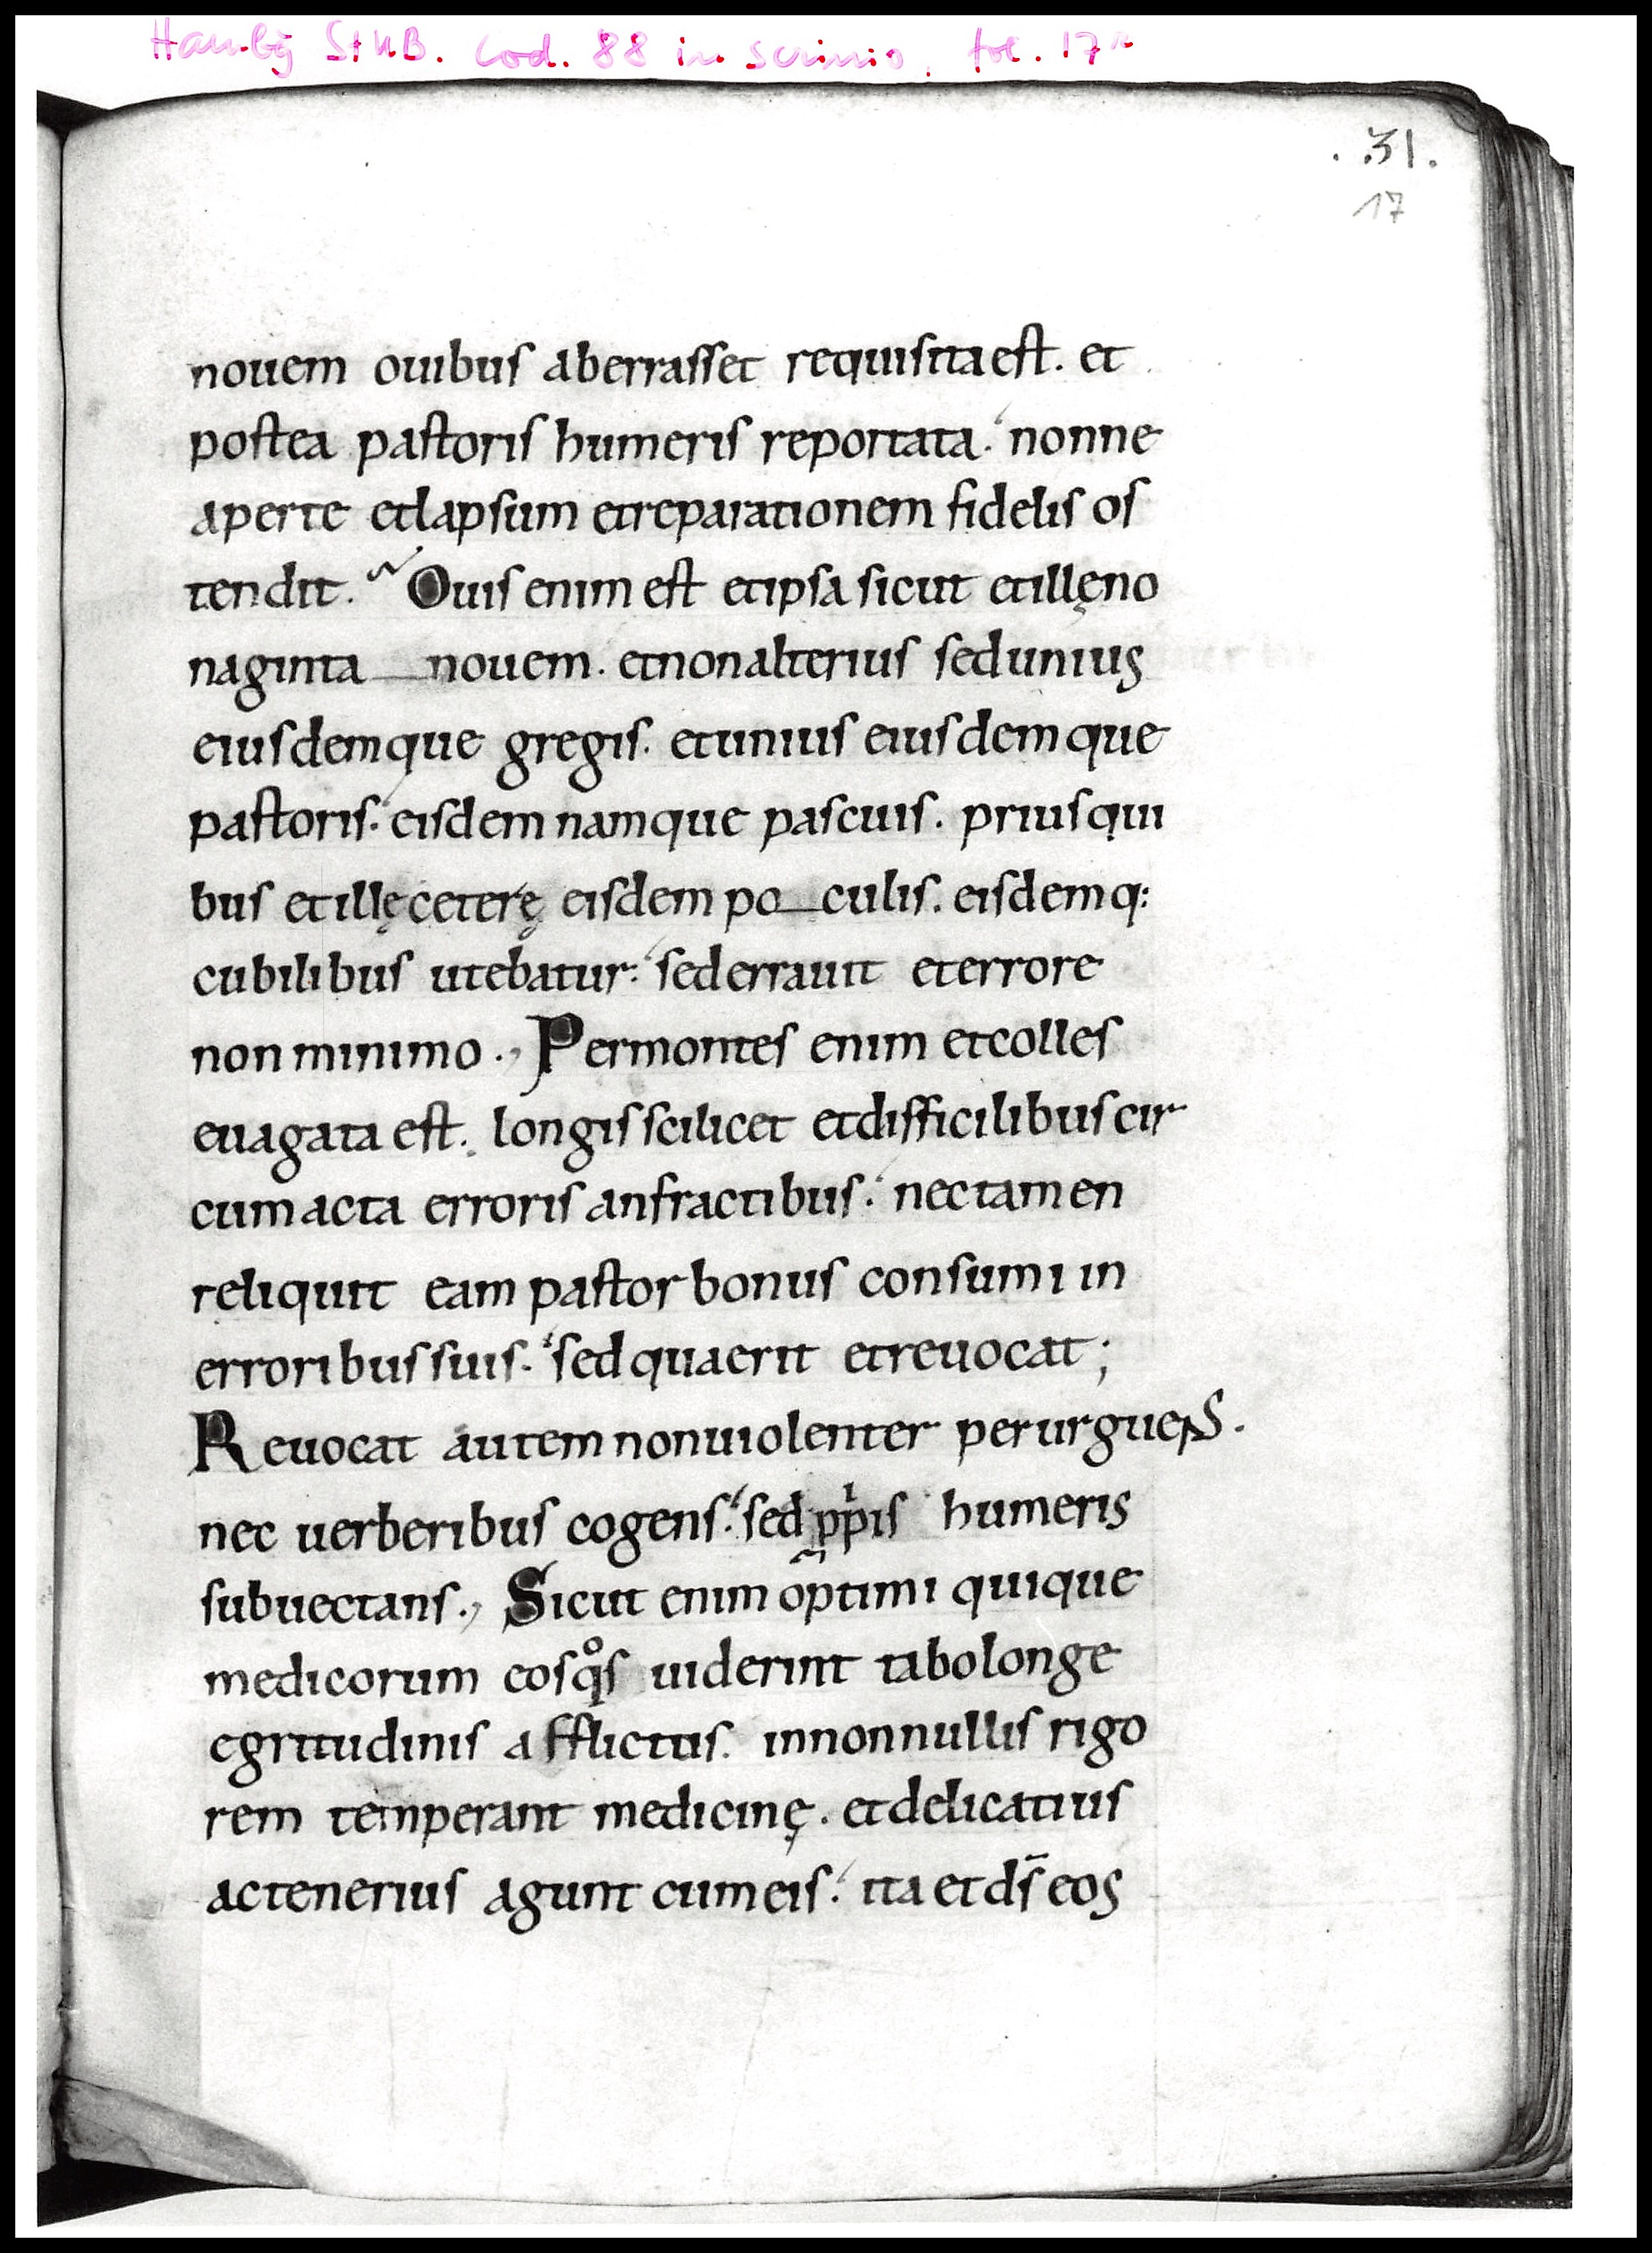 Hambg StUB. Cod. 88 in scrinio, fol. 17r
. 31.
17
nouem ouibus aberrasset requisita est. et
postea pastoris humeris reportata. nonne
aperte et lapsum et reparationem fidelis os
tendit. Ouis enim est et ipsa sicut et illę no
naginta nouem. et non alterius sed unius
eiusdemque gregis. et unius eiusdemque
pastoris. eisdem namque pascuis. prius qui
bus et illę ceterę eisdem poculis. eisdemq:
cubilibus utebatur: sed errauit et errore
non minimo., Per montes enim et colles
euagata est. longis scilicet et difficilibus cir
cumacta erroris anfractibus. nec tamen
reliquit eam pastor bonus consumi in
erroribus suis. sed quaerit et reuocat;
Reuocat autem non uiolenter perurguens.
nec uerberibus cogens. sed ppiis humeris
subuectans., Sicut enim optimi quique
medicorum eos qͦs uiderint tabo longe
egritudinis afflictus. in nonnullis rigo
rem temperant medicinę. et delicatius
ac tenerius agunt cum eis. ita et ds̄ eos